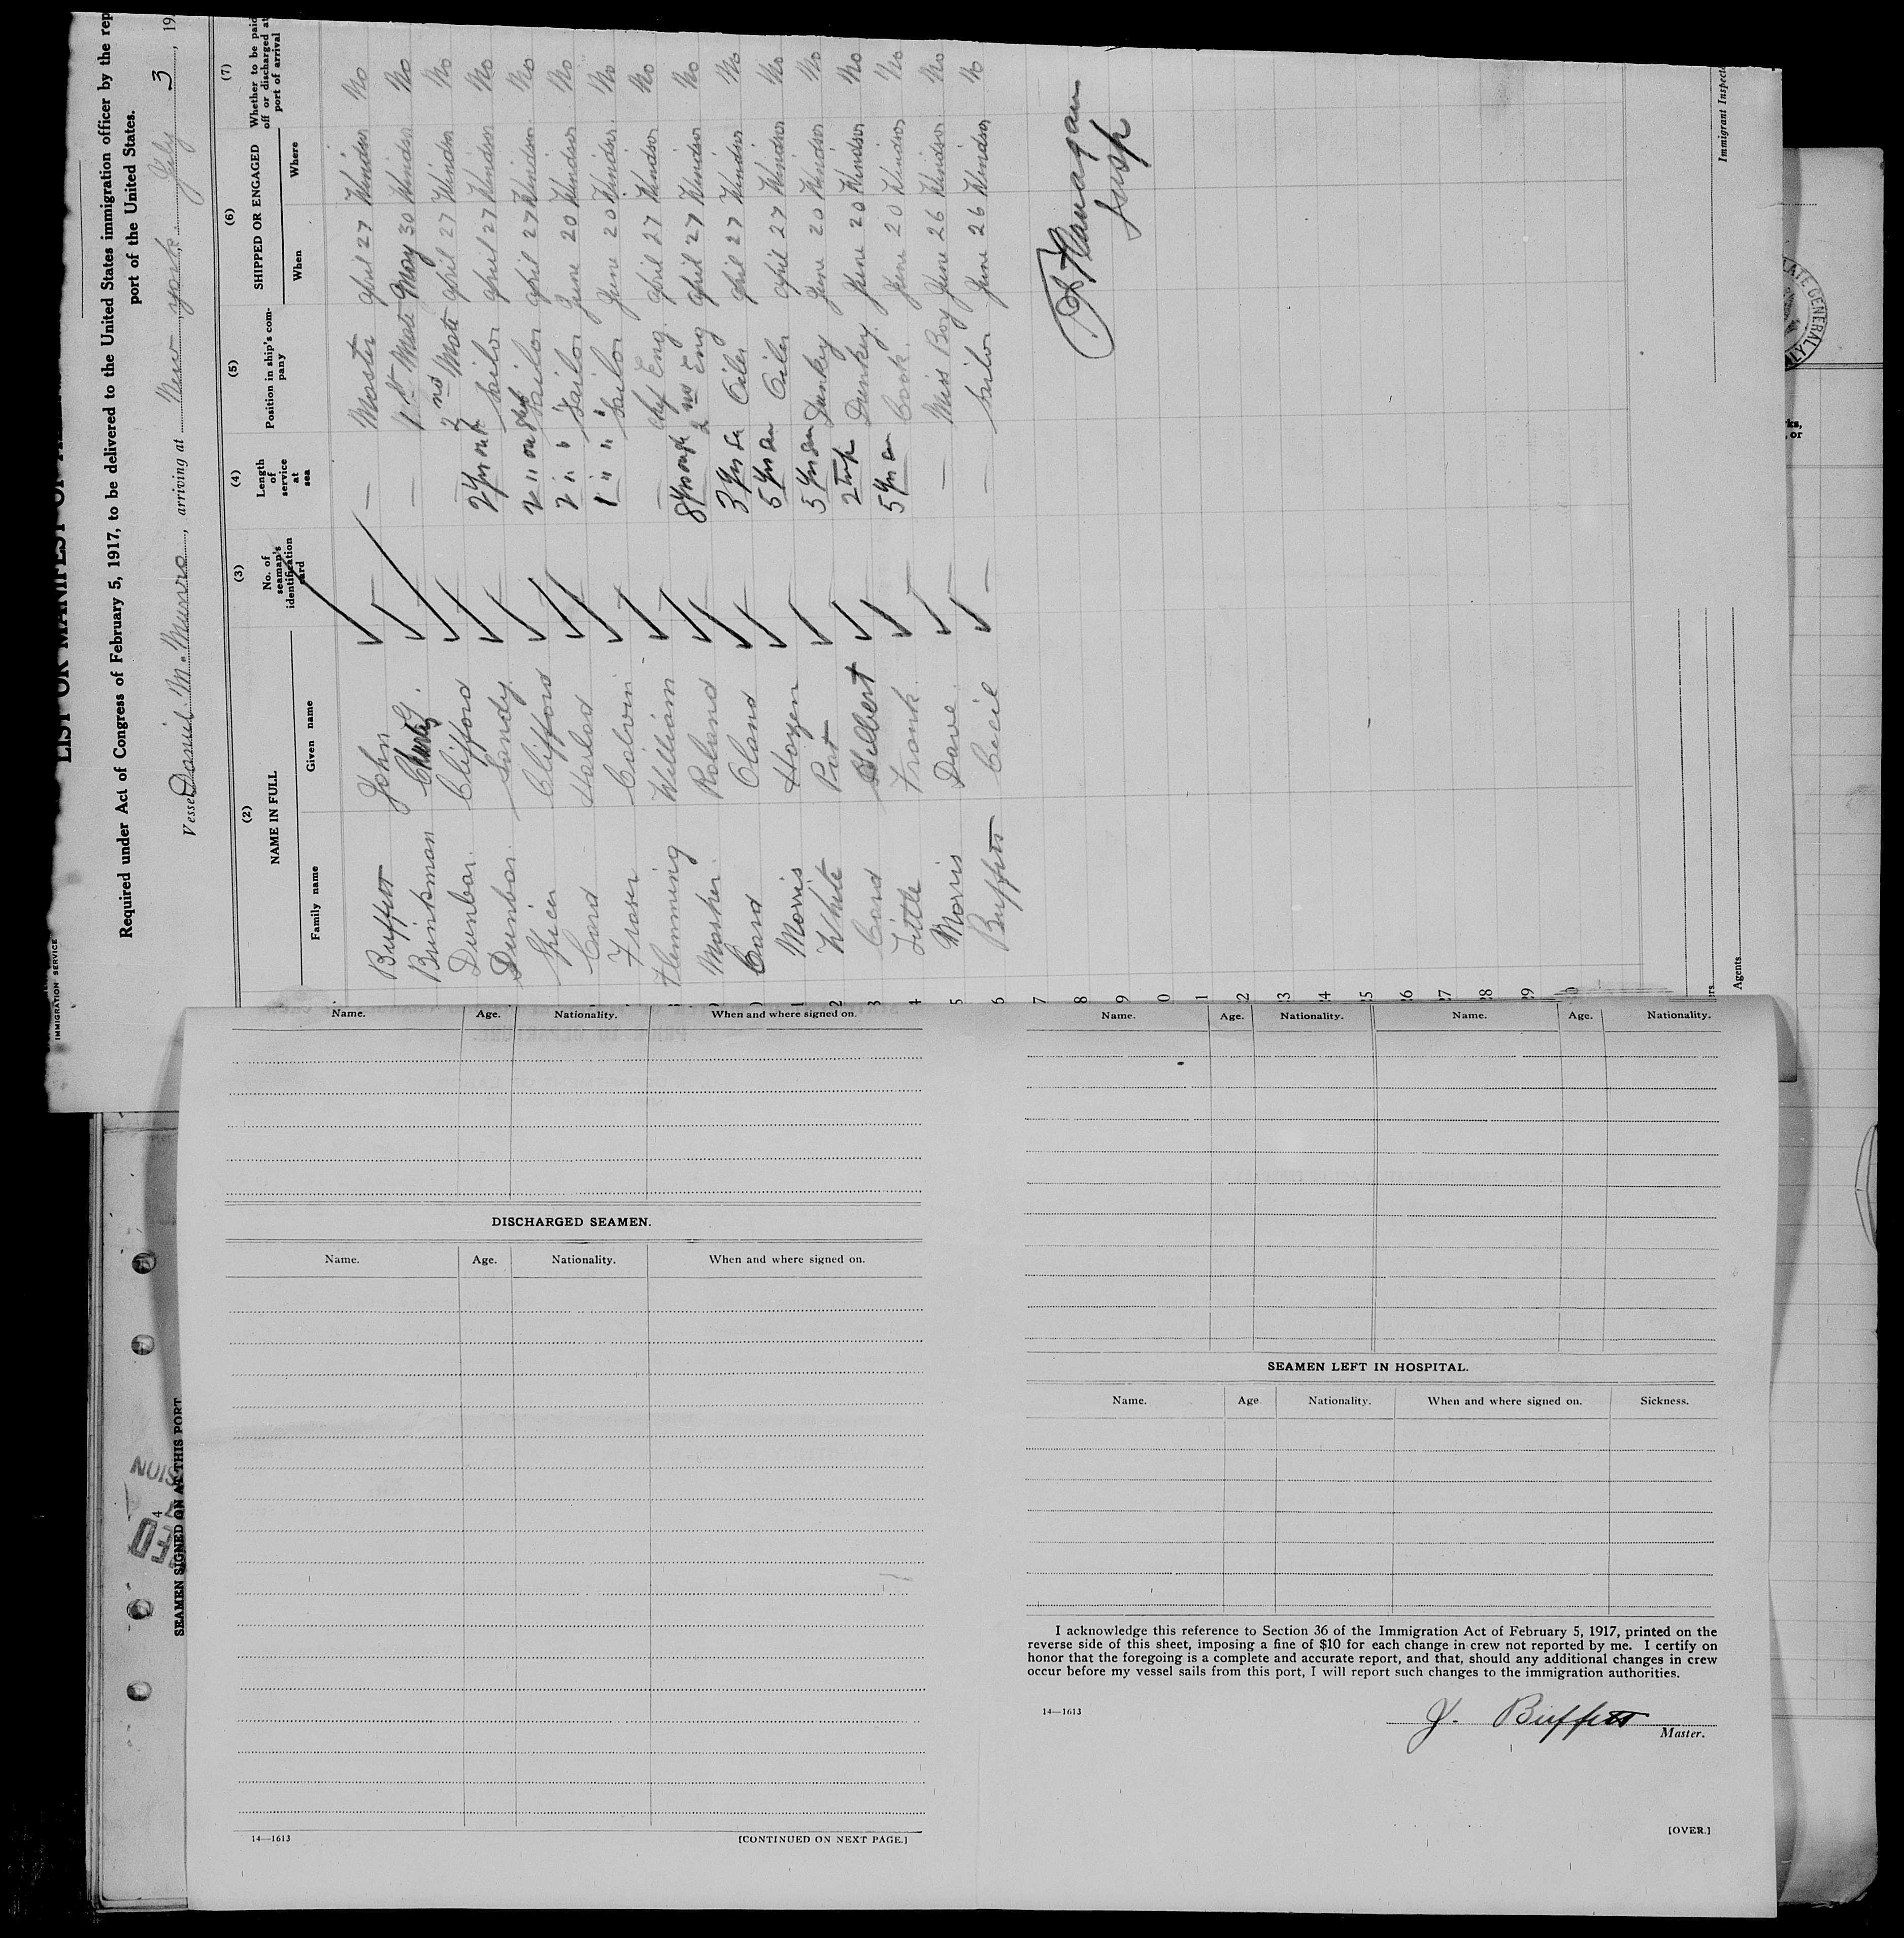 Required under Act of Congress of February 5, 1917, to be delivered to the United States immigration officer by the rep
port of the United States.
Vessel M. Munro, arriving at New York, July 3, 19
IMMIGRATION SERVICE
(2) (3) (4) (5) (6) (7)
NAME IN FULL
Family name Given name
No. of seaman's identification card
Length of service at sea
Position in ship's company
SHIPPED OR ENGAGED
When Where
Whether to be paid off or discharged at port of arrival
Buffett John — Master April 27 Windsor No
Brinkman — 1st Mate May 30 Windsor No
Dunbar Clifford — 2nd Mate April 27 Windsor No
Dunbar Sandy 2 yrs Sailor April 27 Windsor No
Spicer Clifford 2 " Sailor April 27 Windsor No
Card Harlad 2 " " Sailor June 20 Windsor No
Fraser Calvin 1 " " Sailor June 20 Windsor No
Flemming William — Chf Eng. April 27 Windsor No
Mosher Roland 8 yrs 2nd Eng April 27 Windsor No
Card Oland 3 yrs Oiler April 27 Windsor No
Morris Hazen 5 yrs Oiler April 27 Windsor No
White Pat 5 yrs Dunkey June 20 Windsor No
Card Gilbert 2 Dunkey June 20 Windsor No
Little Frank 5 yrs Cook June 20 Windsor No
Morris Dave — Mess Boy June 26 Windsor No
Buffett Cecil — — Sailor June 26 Windsor No
Flanagan
Insp
Immigrant Inspecto
Agents
Name. Age. Nationality. When and where signed on.
DISCHARGED SEAMEN.
Name. Age. Nationality. When and where signed on.
14—1613 [CONTINUED ON NEXT PAGE.]
4
SEAMEN SIGNED ON AT THIS PORT
Name. Age. Nationality. Name. Age. Nationality.
SEAMEN LEFT IN HOSPITAL.
Name. Age. Nationality. When and where signed on. Sickness.
I acknowledge this reference to Section 36 of the Immigration Act of February 5, 1917, printed on the
reverse side of this sheet, imposing a fine of $10 for each change in crew not reported by me. I certify on
honor that the foregoing is a complete and accurate report, and that, should any additional changes in crew
occur before my vessel sails from this port, I will report such changes to the immigration authorities.
14—1613
J. Buffett
Master.
[OVER.]